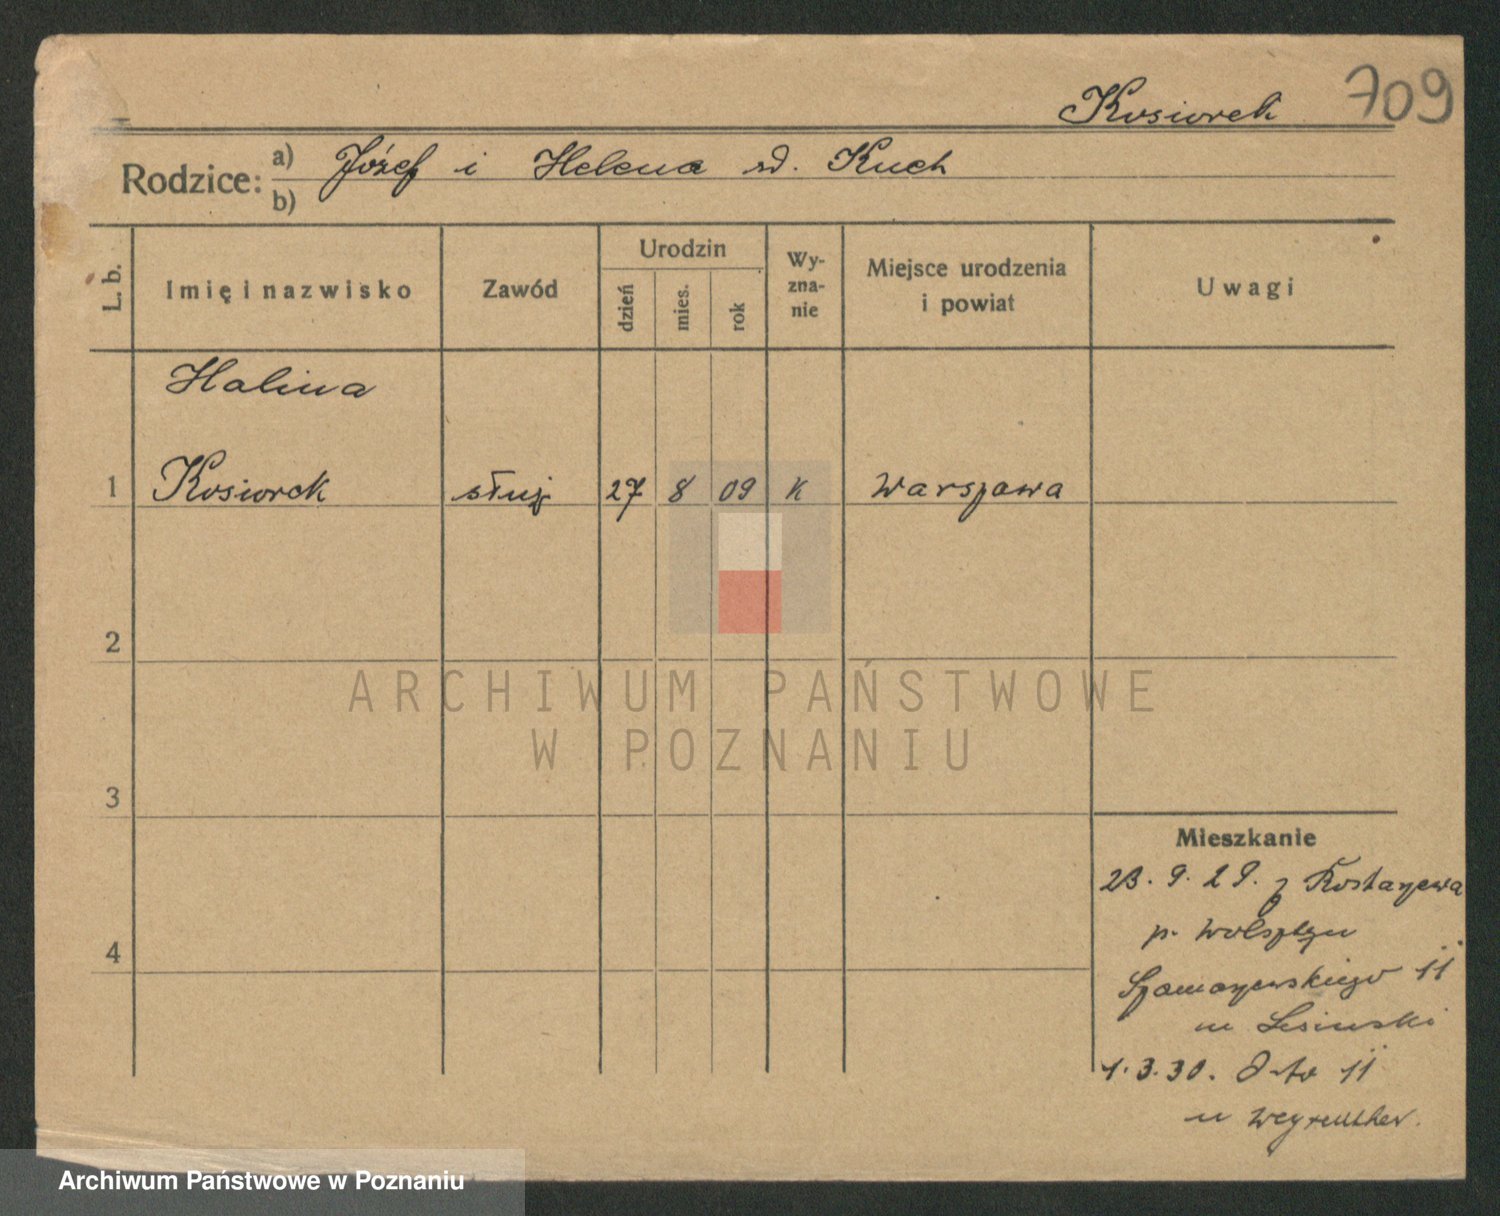 Kosiorek 709
Rodzice: a) Józef i Helena zd. Kuch
b)
L. b. Imię i nazwisko Zawód Urodzin dzień mies. rok Wyznanie Miejsce urodzenia i powiat Uwagi
Halina
1 Kosiorek służ 27 8 09 k Warszawa
2
ARCHIWUM PAŃSTWOWE
W POZNANIU
3
Mieszkanie
23. 9. 29. z
p. Wolsztyn
4
Szamarzewskiego 11
u Lesinski
1. 3. 30. 11
u Weyreuther.
Archiwum Państwowe w Poznaniu